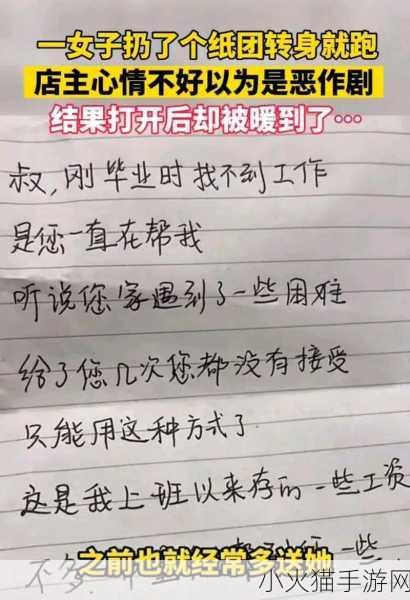 一女子扔了个纸团转身就跑
店主心情不好以为是恶作剧
结果打开后却被暖到了…
叔,刚毕业时找不到工作
是您一直在帮我
听说您家遇到了一些困难
给了您几次您都没有接受
只能用这种方式了
这是我上班以来存的一些工资
不多
之前也就经常多送她一些
小火猫手游网